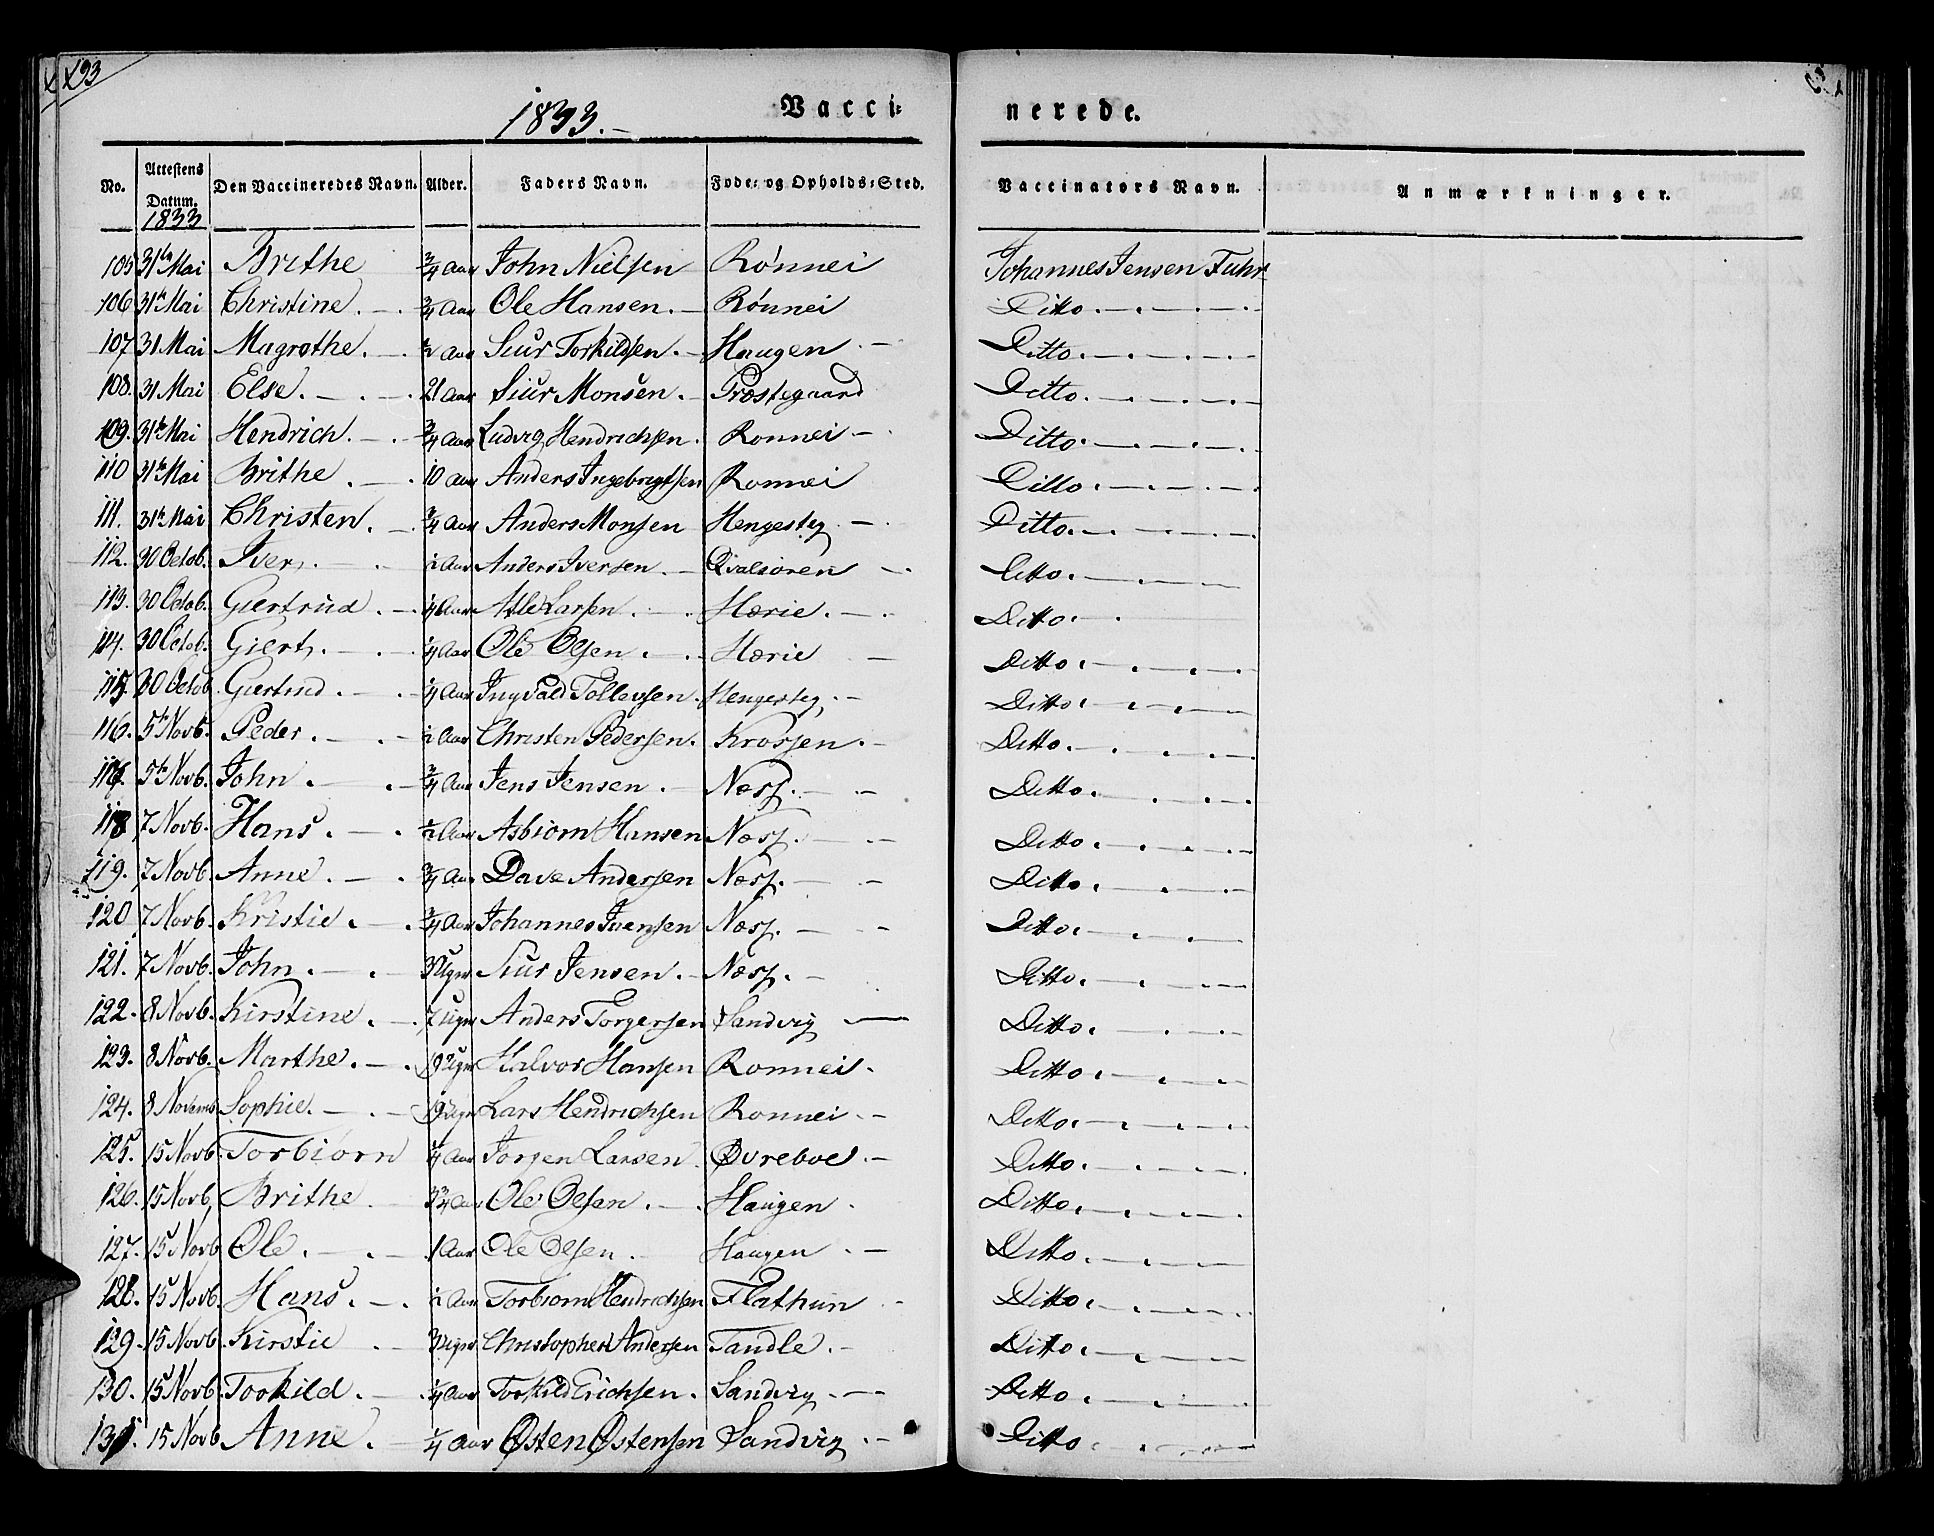 193
1833.-
Vacci=
nerede.
No. Attestens Datum. 1833 Den Vaccineredes Navn. Alder. Faders Navn. Føde- og Opholds-Sted. Vaccinators Navn. Anmærkninger.
105 31te Mai Brithe 3/4 Aar John Nielsen Rønnei Johannes Jensen Fuhr
106 31te Mai Christine. 3/4 Aar Ole Hansen. Rønnei Ditto.
107 31 Mai Magrethe. 1/2 Aar Siur Torkildsen. Haugen Ditto.
108. 31 Mai Else. 21 Aar Siur Monsen. Præstegaard Ditto.
109. 31te Mai Hendrich. 3/4 Aar Ludvig Hendrichsen. Ronnei Ditto.
110 31te Mai Brithe. 10 Aar Anders Ingebrigtsen Ronnei Ditto.
111. 31te Mai Christen. 3/4 Aar Anders Monsen Hengesteg Ditto.
112. 30 Octob. Iver. Aar Anders Iversen. Qvalsoren Ditto.
113. 30 Octob. Giertrud. 1/4 Aar Atle Larsen. Hærie. Ditto.
114. 30 Octob. Giert. 1/4 Aar Ole Olsen. Hærie Ditto.
115 30 Octob. Giertrud. 1/4 Aar Ingvald Tollevsen. Hengesteg. Ditto.
116. 5te Novb. Peder. Aar Christen Pedersen. Krossen. Ditto.
117. 5te Novb. John. 3/4 Aar Jens Jensen. Næss. Ditto.
118 7 Novb. Hans. 1/2 Aar Asbiorn Hansen Næss. Ditto.
119. 7 Novb. Anne. 3/4 Aar Dave Andersen Næss. Ditto.
120 7 Novb. Kristie. 3/4 Aar Johannes Iversen Næss. Ditto.
121. 7 Novb. John. Ugr Siur Jensen. Næss. Ditto.
122. 8 Novb. Kirstine. 7 Ugr Anders Torgersen Sandvig Ditto.
123. 8 Novb. Marthe. 19 Ugr Halvor Hansen Ronnei. Ditto.
124. 8 Novemb Sophie. 19 Ugr Lars Hendrichsen Ronnei. Ditto.
125. 15 Novb. Torbiørn 1/4 Aar Jørgen Larsen. Øvreboe. Ditto.
126. 15 Novb. Brithe 3 3/4 Aar Ole Olsen. Haugen Ditto.
127. 15 Novb Ole. 1 Aar Ole Olsen. Haugen. Ditto.
128. 15 Novb. Hans. Aar Torbiorn Hendrichsen Flathun Ditto.
129. 15 Novb. Kirstie Ugr Christopher Andersen Tandle. Ditto.
130. 15 Novb. Torkild. 1/4 Aar Torkild Erichsen. Sandvig. Ditto.
131. 15 Novb Anne. 1/4 Aar Østen Østensen Sandvig. Ditto